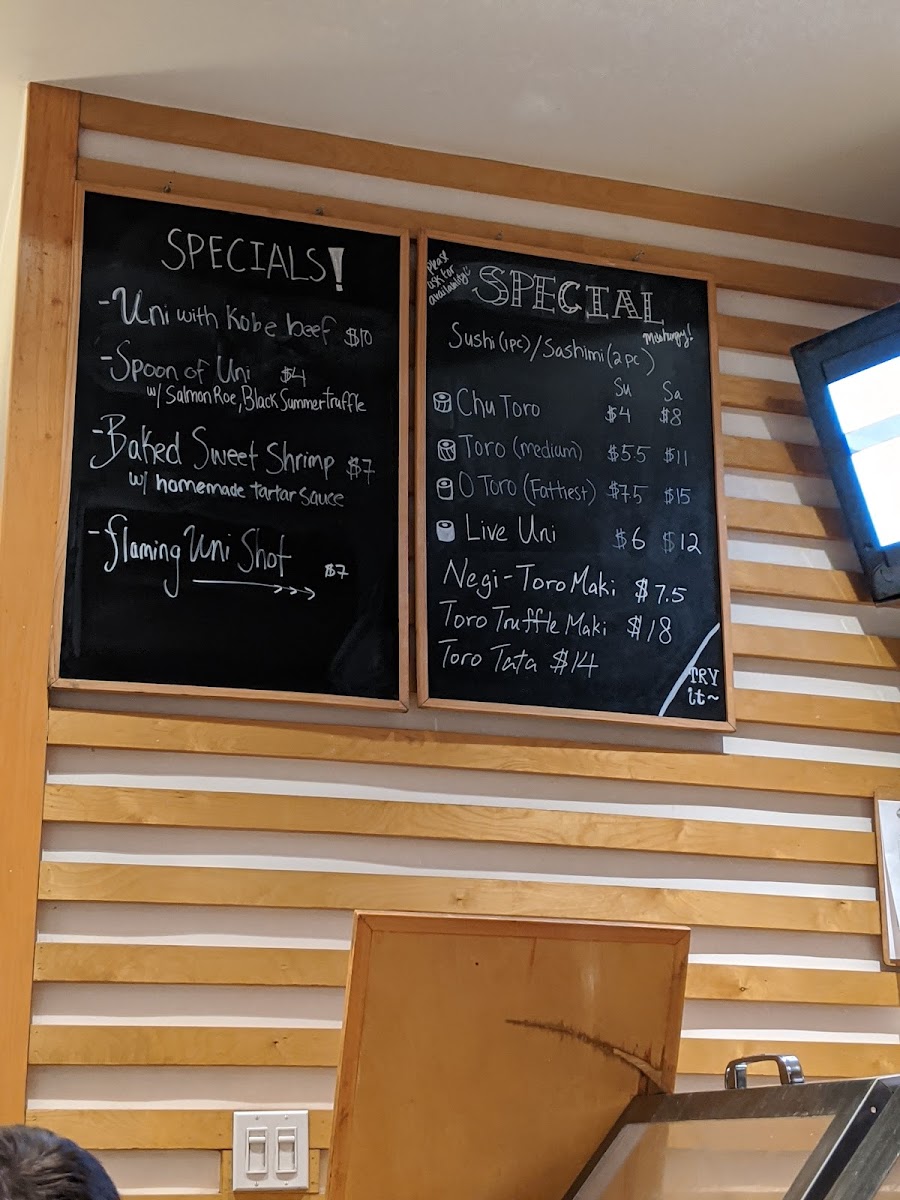 SPECIALS!
-Uni with Kobe beef $10
-Spoon of Uni $4
w/ Salmon Roe, Black Summer truffle
-Baked Sweet Shrimp $7
w/ homemade tartar sauce
-flaming Uni Shot $7
Please ask for availability!
SPECIAL
Me hungry!
Sushi (1pc) / Sashimi (2pc)
Su Sa
Chu Toro $4 $8
Toro (medium) $5.5 $11
O Toro (Fattiest) $7.5 $15
Live Uni $6 $12
Negi-Toro Maki $7.5
Toro Truffle Maki $18
Toro Tata $14
TRY
it~